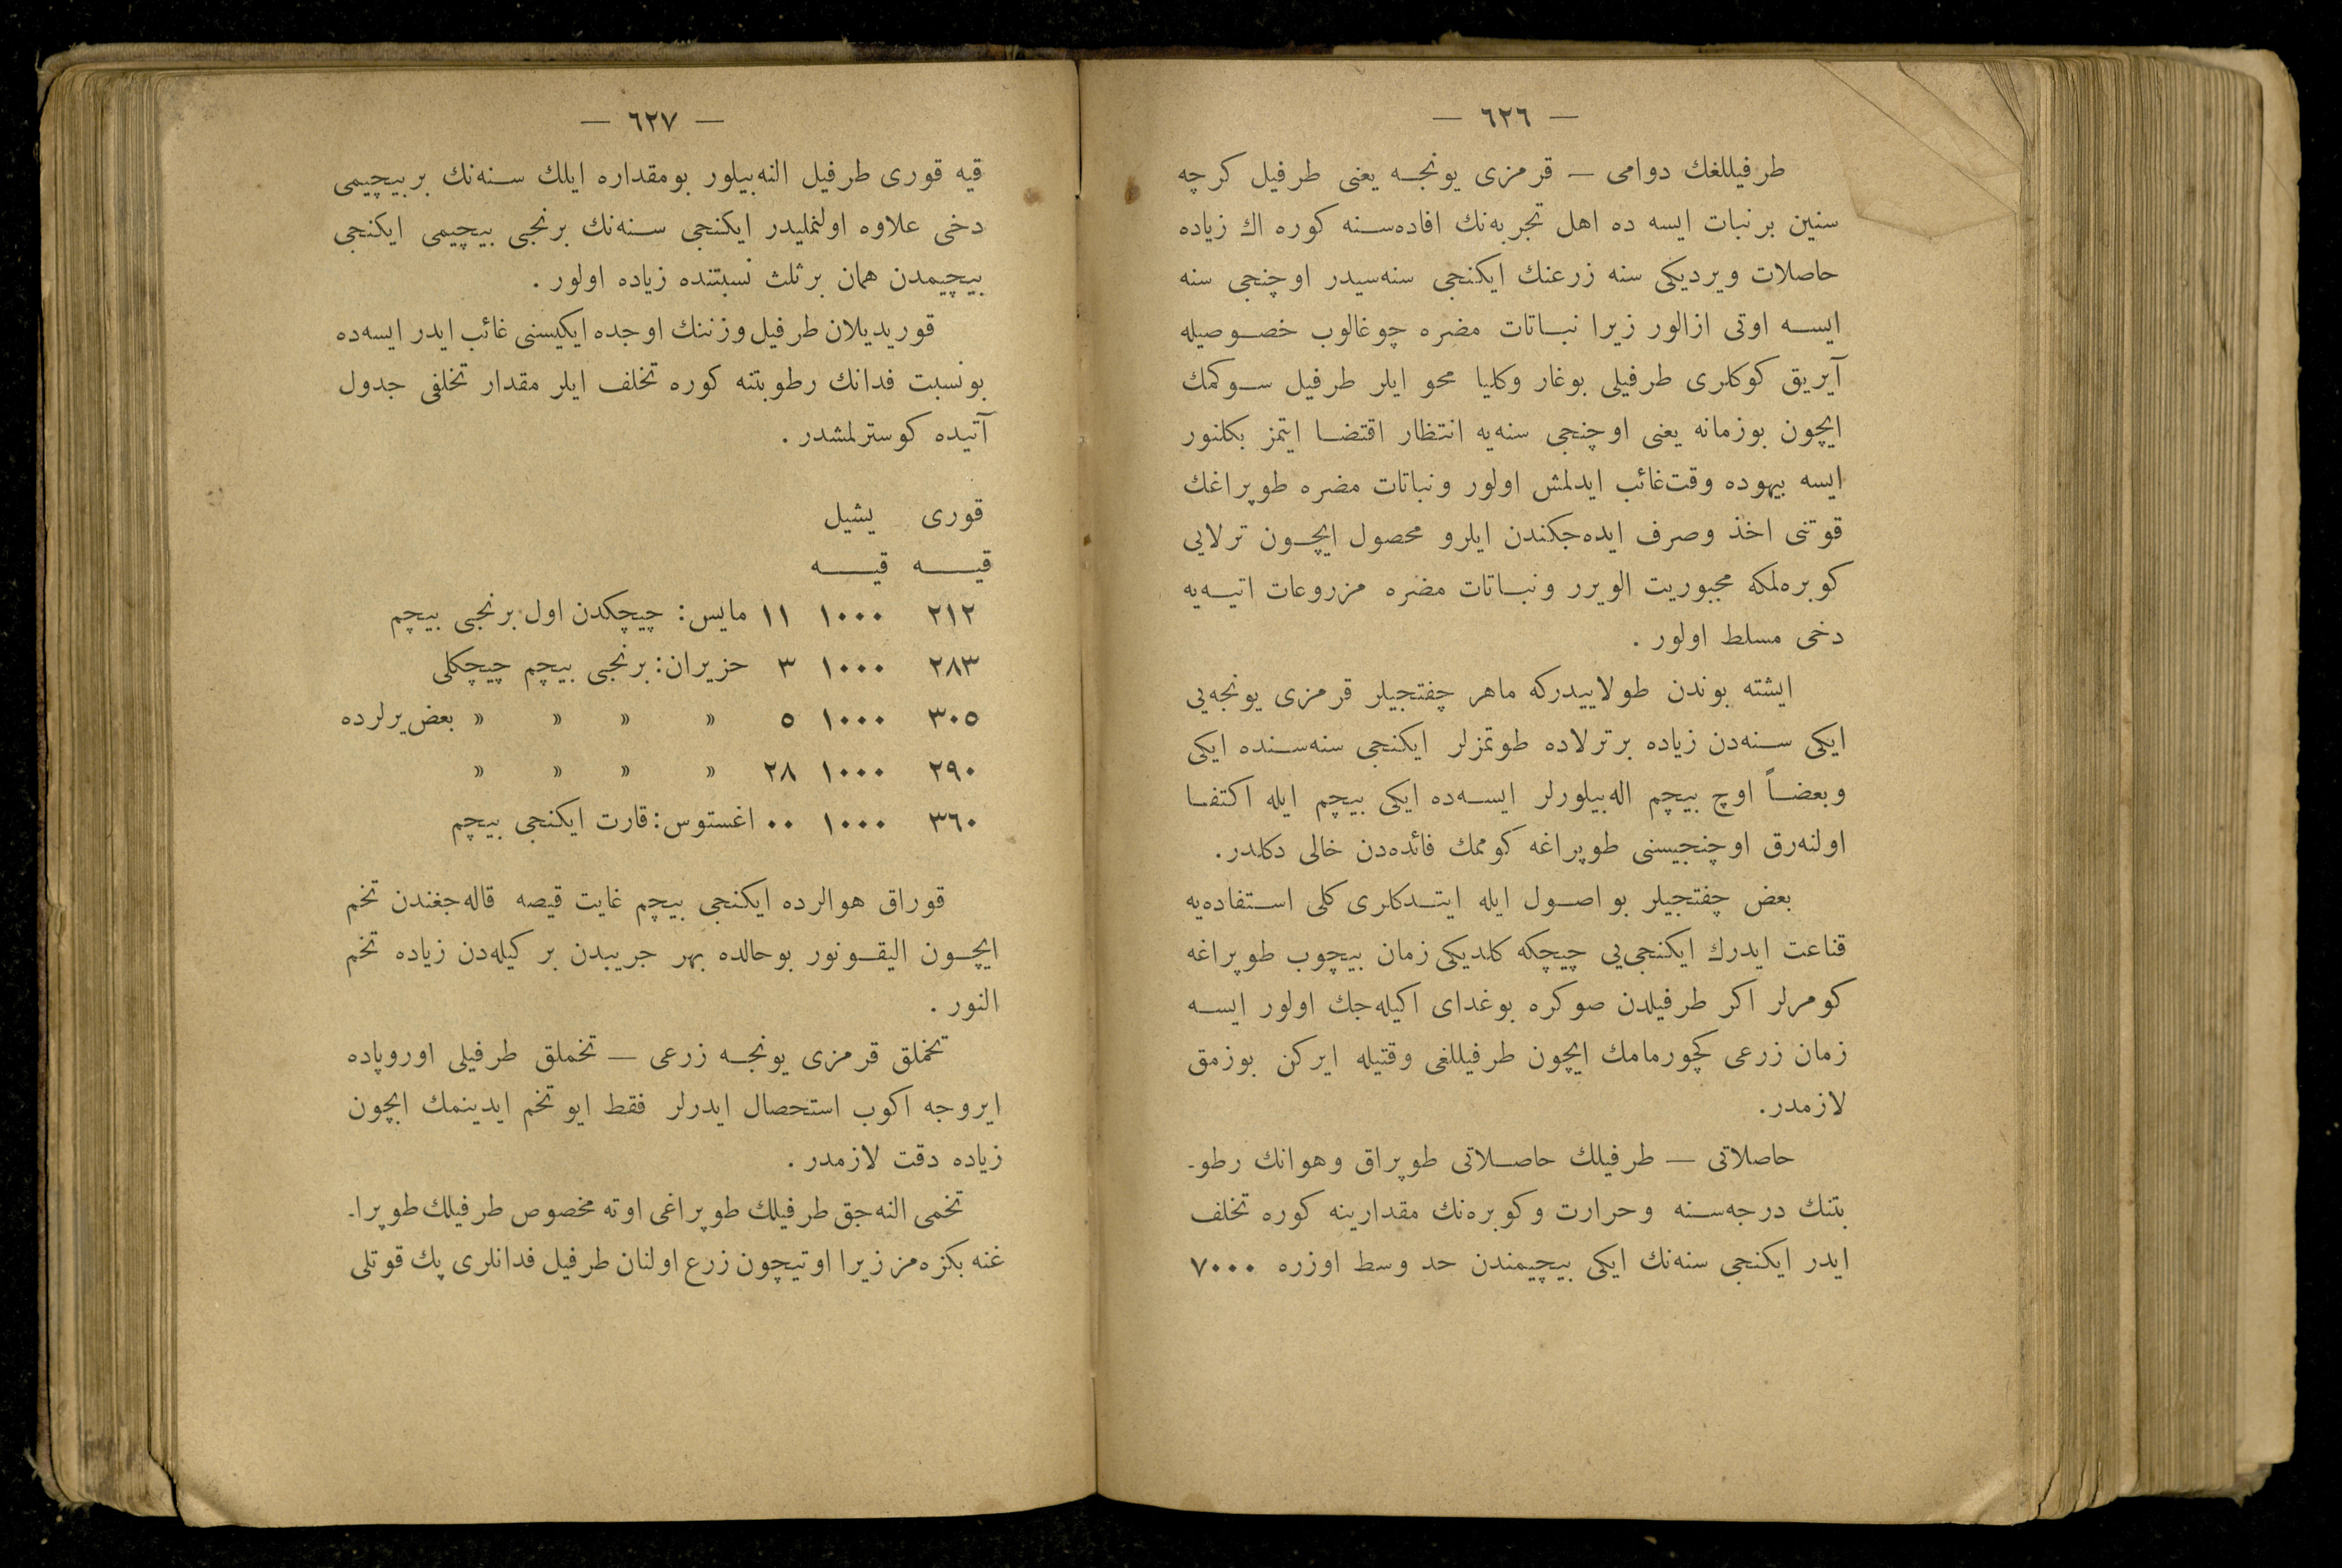 — ٦٢٦ —
طرفیللغك دوامی — قرمزی یونجه یعنی طرفیل كرچه
سنین برنبات ایسه ده اهل تجربه‌نك افاده‌سنه كوره اك زیاده
حاصلات ویردیكی سنه زرعنك ایكنجی سنه‌سیدر اوچنجی سنه
ایسه اوتی ازالور زیرا نباتات مضره چوغالوب خصوصیله
آیریق كوكلری طرفیلی بوغار وكلیا محو ایلر طرفیل سوكمك
ایچون بوزمانه یعنی اوچنجی سنه‌یه انتظار اقتضا ایتمز بكلنور
ایسه بیهوده وقت‌غائب ایدلمش اولور ونباتات مضره طوپراغك
قوتنی اخذ وصرف ایده‌جكندن ایلرو محصول ایچون ترلایی
كوبره‌لمكه مجبوریت الویرر ونباتات مضره مزروعات اتیه‌یه
دخی مسلط اولور .
ایشته بوندن طولاییدركه ماهر چفتجیلر قرمزی یونجه‌یی
ایكی سنه‌دن زیاده برترلاده طوتمزلر ایكنجی سنه‌سنده ایكی
وبعضاً اوچ بیچم اله‌بیلورلر ایسه‌ده ایكی بیچم ایله اكتفا
اولنه‌رق اوچنجیسنی طوپراغه كوممك فائده‌دن خالی دكلدر.
بعض چفتجیلر بو اصول ایله ایتدكلری كلی استفاده‌یه
قناعت ایدرك ایكنجی‌یی چیچكه كلدیكی زمان بیچوب طوپراغه
كومرلر اكر طرفیلدن صوكره بوغدای اكیله‌جك اولور ایسه
زمان زرعی كچورمامك ایچون طرفیللغی وقتیله ایركن بوزمق
لازمدر.
حاصلاتی — طرفیلك حاصلاتی طوپراق وهوانك رطو-
بتنك درجه‌سنه وحرارت وكوبره‌نك مقدارینه كوره تخلف
ایدر ایكنجی سنه‌نك ایكی بیچیمندن حد وسط اوزره ٧٠٠٠
— ٦٢٧ —
قیه قوری طرفیل النه‌بیلور بومقداره ایلك سنه‌نك بربیچیمی
دخی علاوه اولنملیدر ایكنجی سنه‌نك برنجی بیچیمی ایكنجی
بیچیمدن همان برثلث نسبتنده زیاده اولور .
قوریدیلان طرفیل وزننك اوجده ایكیسنی غائب ایدر ایسه‌ده
بونسبت فدانك رطوبتنه كوره تخلف ایلر مقدار تخلفی جدول
آتیده كوسترلمشدر .
قوری یشیل
قیه قیه
٢١٢ ١٠٠٠ ١١ مایس: چیچكدن اول برنجی بیچم
٢٨٣ ١٠٠٠ ٣ حزیران: برنجی بیچم چیچكلی
٣٠٥ ١٠٠٠ ٥ » » » » بعض‌یرلرده
٢٩٠ ١٠٠٠ ٢٨ » » » »
٣٦٠ ١٠٠٠ ٠٠ اغستوس: قارت ایكنجی بیچم
قوراق هوالرده ایكنجی بیچم غایت قیصه قاله‌جغندن تخم
ایچون الیقونور بوحالده بهر جریبدن بر كیله‌دن زیاده تخم
النور .
تخملق قرمزی یونجه زرعی — تخملق طرفیلی اوروپاده
ایروجه اكوب استحصال ایدرلر فقط ایو تخم ایدینمك ایچون
زیاده دقت لازمدر .
تخمی النه‌جق طرفیلك طوپراغی اوته مخصوص طرفیلك طوپرا-
غنه بكزه‌مز زیرا اوتیچون زرع اولنان طرفیل فدانلری پك قوتلی